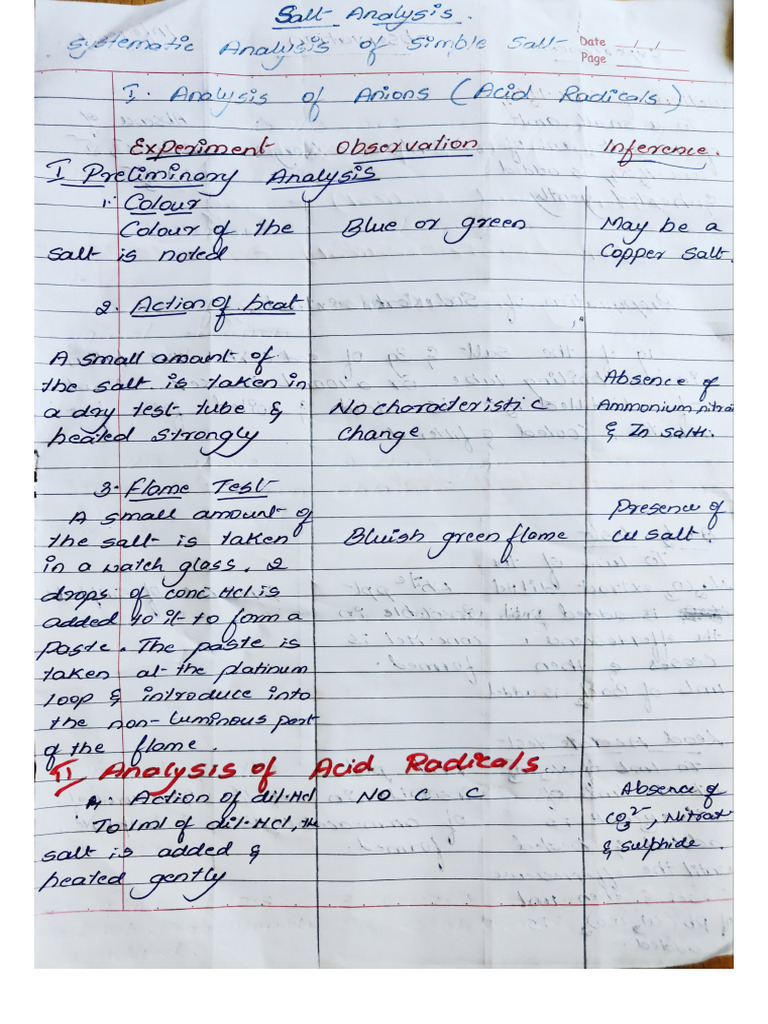 Salt Analysis.
Systematic Analysis of Simple Salt
Date / /
Page
I. Analysis of Anions (Acid Radicals)
Experiment Observation Inference.
I Preliminary Analysis
1. Colour
Colour of the Blue or green May be a
salt is noted Copper Salt.
2. Action of heat
A small amount of
the salt is taken in Absence of
a dry test tube & No characteristic Ammonium, nitra
heated strongly change & Zn salts.
3. Flame Test
A small amount of Presence of
the salt is taken Bluish green flame cu salt.
in a watch glass. 2
drops of conc Hcl is
added to it to form a
paste. The paste is
taken at the platinum
loop & introduce into
the non-luminous part
of the flame.
II Analysis of Acid Radicals
A. Action of dil.Hcl NO C C Absence of
To 1ml of dil.Hcl, the CO3^2-, Nitrat
salt is added & & sulphide.
heated gently